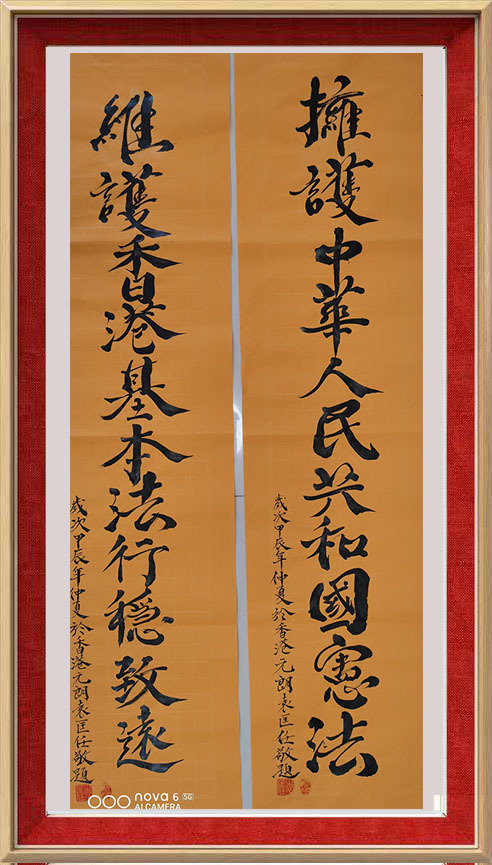 擁護中華人民共和國憲法
歲次甲辰年仲夏於香港元朗袁匡任敬題
維護香港基本法行穩致遠
歲次甲辰年仲夏於香港元朗袁匡任敬題
nova 6 5G
AI CAMERA